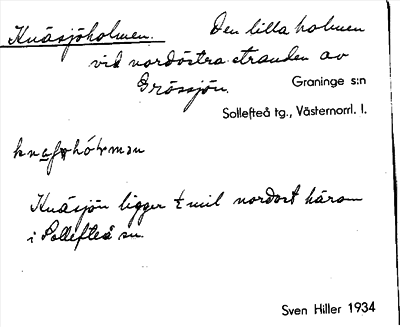 Knäsjöholmen. Den lilla holmen
vid nordöstra stranden av
Grössjön. Graninge s:n
Sollefteå tg., Västernorrl. l.
Knäsjön ligger ½ mil nordost härom
i Sollefteå sn.
Sven Hiller 1934